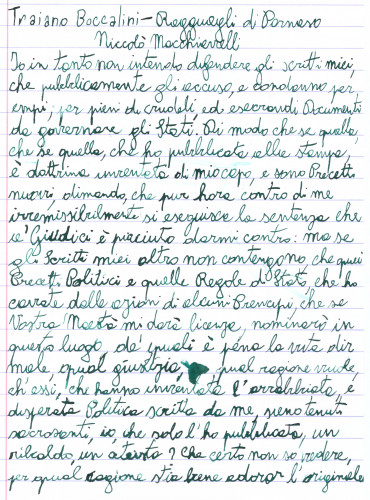 Traiano Boccalini - Ragguagli di Parnaso
Niccolò Macchiavelli
Io in tanto non intendo difendere gli scritti miei,
che pubblicamente gli accuso, e condanno per
empi; per pieni di crudeli, ed esecrandi Documenti
da governare gli Stati. Di modo che se quella,
che se quella, che ho pubblicata alla stampa,
è dottrina inventata di mio capo, e sono Precetti
nuovi, dimando, che pur hora contro di me
irremissibilmente si eseguisca la sentenza che
a' Giudici è piaciuto darmi contro: ma se
gli Scritti miei altro non contengono, che quei
Precetti Politici e quelle Regole di Stato, che ho
cavate dalle azioni di alcuni Prencipi, che se
Vostra Maestà mi darà licenza, nominarò in
questo luogo, de' quali è pena la vita dir
male, qual giustizia, qual ragione vuole,
ch'essi, che hanno inventata l'arrabbiata, e
disperata Politica scritta da me, sieno tenuti
sacrosanti, io, che solo l'ho pubblicata, un
ribaldo, un ateista? Che certo non so vedere,
per qual cagione stia bene adorar l'originale